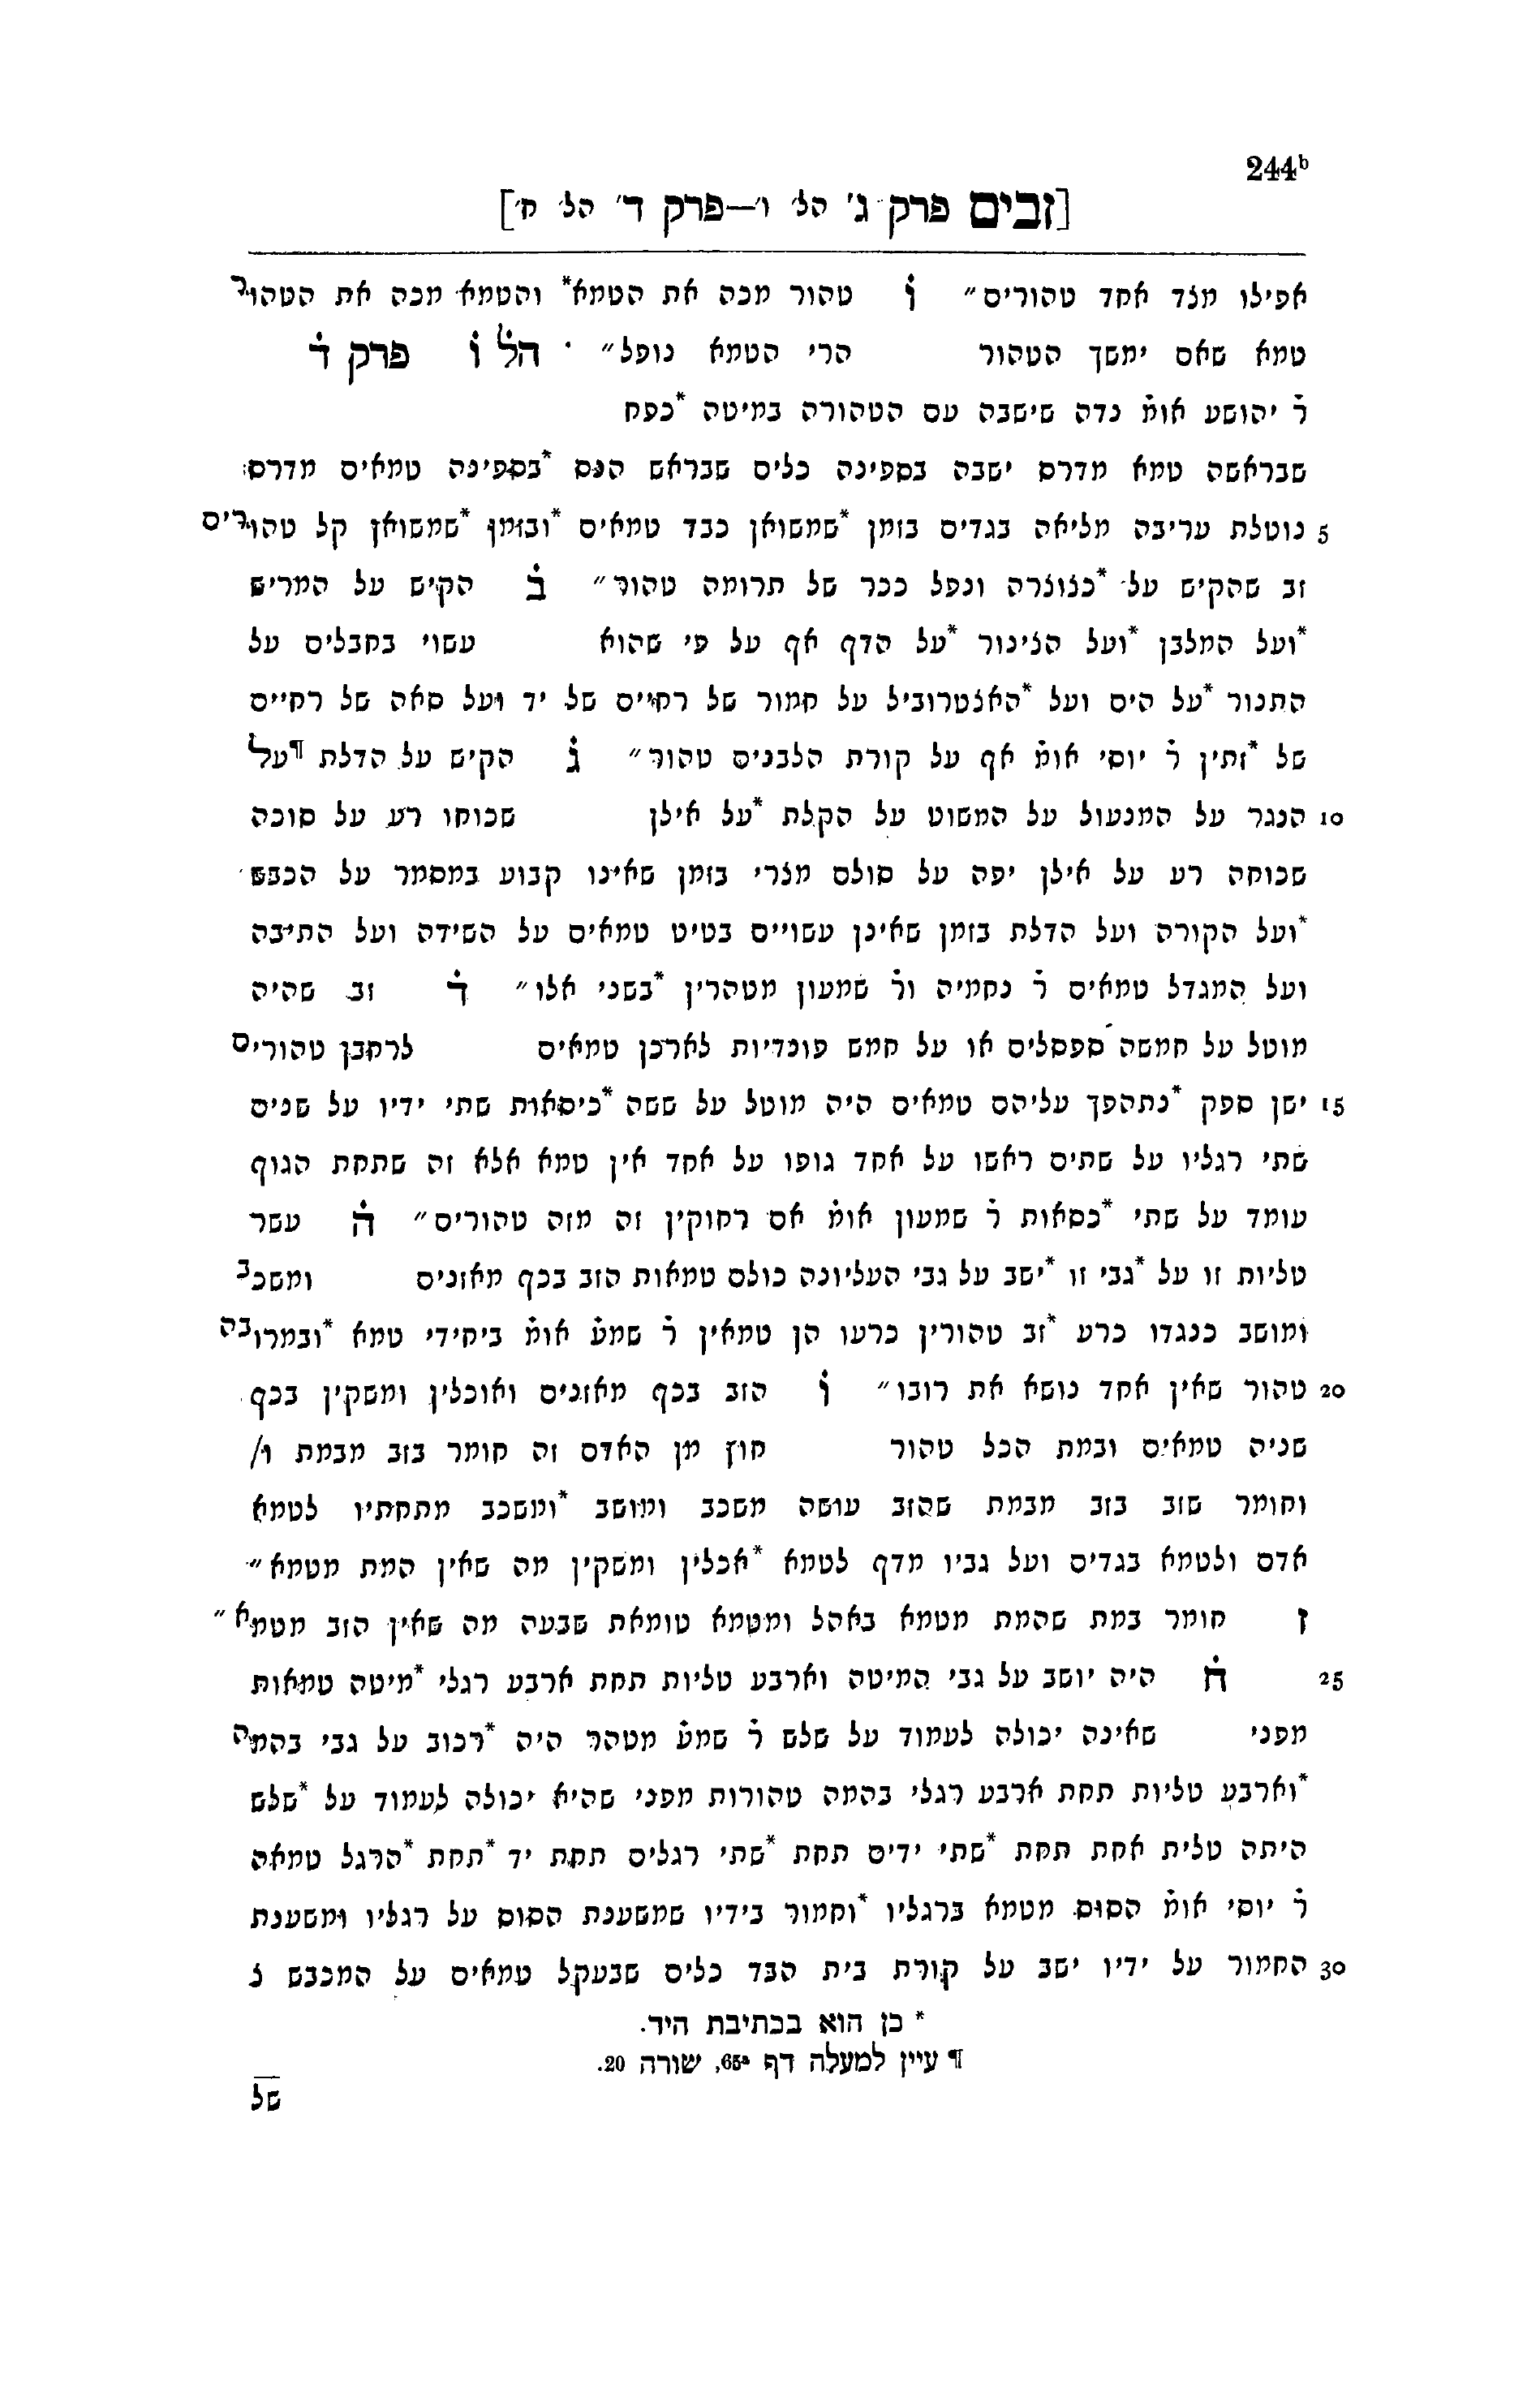 244ᵇ
[זבים פרק ג׳ הל׳ ו׳—פרק ד׳ הל׳ ח׳]
אפילו מצד אחד טהורים״ ו טהור מכה את הטמא* והטמא מכה את הטהור
טמא שאם ימשך הטהור הרי הטמא נופל״ · הל ו פרק ד
ר̇ יהושע אומ̇ נדה שישבה עם הטהורה במיטה *כפח
שבראשה טמא מדרס ישבה בספינה כלים שבראש הנס *בספינה טמאים מדרס:
5 נוטלת עריבה מליאה בגדים בזמן *שמשואן כבד טמאים *ובזמן *שמשואן קל טהורים
זב שהקיש על *כצוצרה ונפל ככר של תרומה טהור״ ב הקיש על המריש
*ועל המלבן *ועל הצינור *על הדף אף על פי שהוא עשוי בחבלים על
התנור *על הים ועל *האצטרוביל על חמור של רחיים של יד ועל סאה של רחיים
של *זתין ר̇ יוסי אומ̇ אף על קורת הלבנים טהור״ ג הקיש על הדלת ¶על
10 הנגר על המנעול על המשוט על הקלת *על אילן שכוחו רע על סוכה
שכוחה רע על אילן יפה על סולם מצרי בזמן שאינו קבוע במסמר על הכבש
*ועל הקורה ועל הדלת בזמן שאינן עשויים בטיט טמאים על השידה ועל התיבה
ועל המגדל טמאים ר̇ נחמיה ור̇ שמעון מטהרין *בשני אלו״ ד זב שהיה
מוטל על חמשה ספסלים או על חמש פונדיות לארכן טמאים לרחבן טהורים
15 ישן ספק *נתהפך עליהם טמאים היה מוטל על ששה *כיסאות שתי ידיו על שנים
שתי רגליו על שתים ראשו על אחד גופו על אחד אין טמא אלא זה שתחת הגוף
עומד על שתי *כסאות ר̇ שמעון אומ̇ אם רחוקין זה מזה טהורים״ ה עשר
טליות זו על *גבי זו *ישב על גבי העליונה כולם טמאות הזב בכף מאזנים ומשכב
ומושב כנגדו כרע *זב טהורין כרעו הן טמאין ר̇ שמע̇ אומ̇ ביחידי טמא *ובמרובה
20 טהור שאין אחד נושא את רובו״ ו הזב בכף מאזנים ואוכלין ומשקין בכף
שניה טמאים ובמת הכל טהור חוץ מן האדם זה חומר בזב מבמת ו/
וחומר שזב בזב מבמת שהזב עושה משכב ומושב *ומשכב מתחתיו לטמא
אדם ולטמא בגדים ועל גביו מדף לטמא *אכלין ומשקין מה שאין המת מטמא״
ז חומר במת שהמת מטמא באהל ומטמא טומאת שבעה מה שאין הזב מטמא״
25 ח היה יושב על גבי המיטה וארבע טליות תחת ארבע רגלי *מיטה טמאות
מפני שאינה יכולה לעמוד על שלש ר̇ שמע̇ מטהר היה *רכוב על גבי בהמה
*וארבע טליות תחת ארבע רגלי בהמה טהורות מפני שהיא יכולה לעמוד על *שלש
היתה טלית אחת תחת *שתי ידים תחת *שתי רגלים תחת יד *תחת *הרגל טמאה
ר̇ יוסי אומ̇ הסוס מטמא ברגליו *וחמור בידיו שמשענת הסוס על רגליו ומשענת
30 החמור על ידיו ישב על קורת בית הבד כלים שבעקל טמאים על המכבש צ
* כן הוא בכתיבת היד.
¶ עיין למעלה דף 65ᵃ, שורה 20.
של